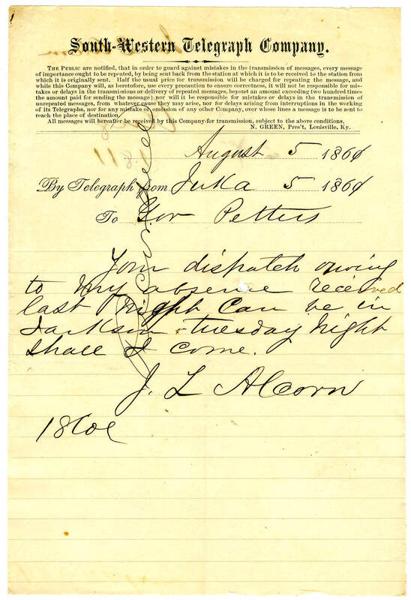 South-Western Telegraph Company.
THE PUBLIC are notified, that in order to guard against mistakes in the transmission of messages, every message
of importance ought to be repeated, by being sent back from the station at which it is to be received to the station from
which it is originally sent. Half the usual price for transmission will be charged for repeating the message, and
while this Company will, as heretofore, use every precaution to ensure correctness, it will not be responsible for mis-
takes or delays in the transmission or delivery of repeated messages, beyond an amount exceeding two hundred times
the amount paid for sending the message; nor will it be responsible for mistakes or delays in the transmission of
unrepeated messages, from whatever cause they may arise, nor for delays arising from interruptions in the working
of its Telegraphs, nor for any mistake or omission of any other Company, over whose lines a message is to be sent to
reach the place of destination.
All messages will hereafter be received by this Company for transmission, subject to the above conditions.
N. GREEN, Pres't, Louisville, Ky.
August 5 1860
By Telegraph from Iuka 5 1860
To Gov Pettus
Your dispatch owing
to my absence received
last night Can be in
Jackson tuesday night
shall I come.
J. L Alcorn
18 Col